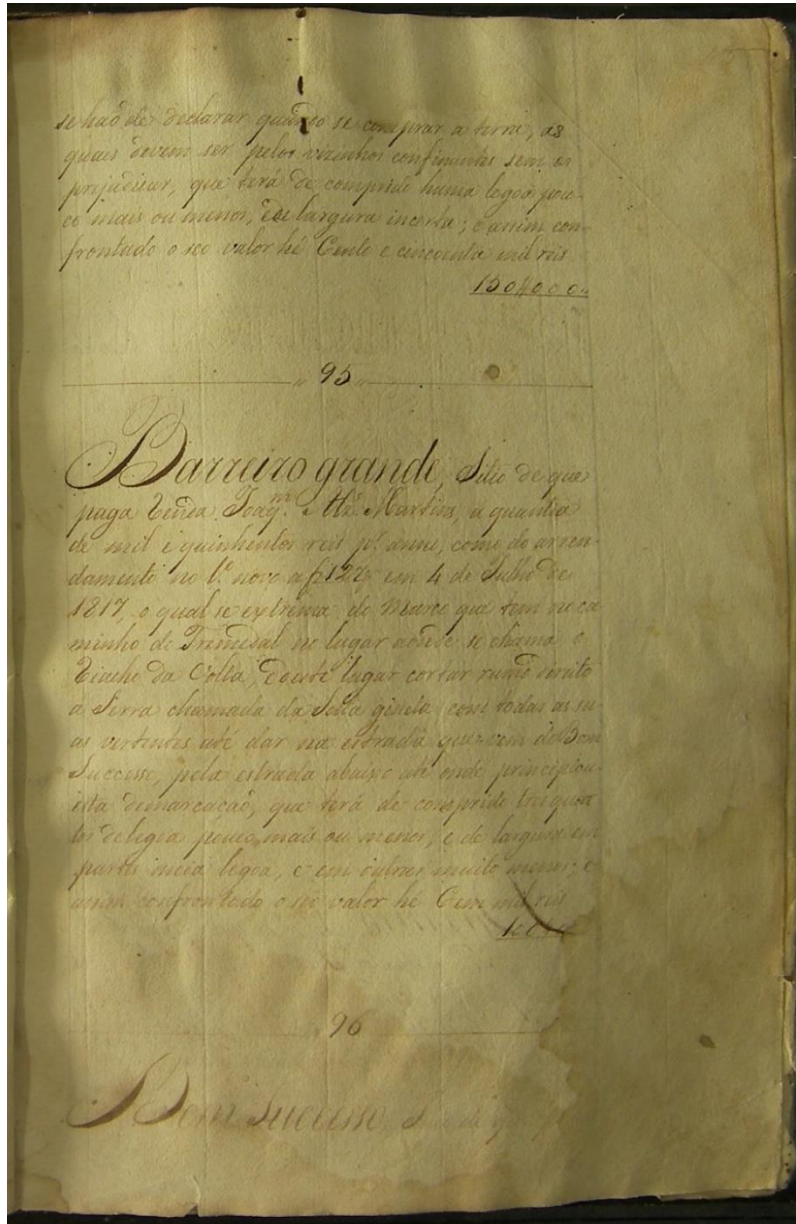 se haõ de declarar quando se comprar a terra, as
quais devem ser pelos vizinhos confinantes sem os
prejudicar, que terá de comprido huma legoa pou-
co mais ou menos, e de largura incerta; e assim con-
frontado o seo valor hé Cento e cincoenta mil reis
150$000
95
Barreiro grande, Sitio de que
paga Renda Joaqm. Martins, a quantia
de mil e quinhentos reis pr. anno, como do arren-
damento no Lo. novo a f 127 em 4 de Julho de
1817, o qual se extrema do Marco que tem no ca
minho do no lugar aonde se chama o
Riacho da Volta, deste lugar cortar rumo direito
a Serra chamada da gineta com todas as su-
as vertentes até dar na estrada que vem do Bom
Successo, pela estrada abaixo até onde principiou
esta demarcaçaõ, que terá de comprido tres quar
tos de legoa pouco mais ou menos, e de largura em
partes meia legoa, e em outras muito menos; e
assim confrontado o seo valor hé Cem mil reis
96
Bom Sucesso, de que